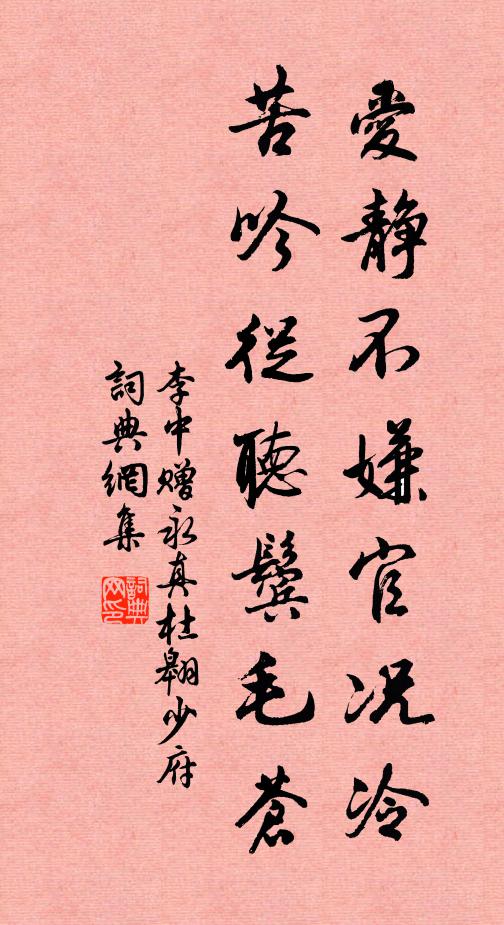 愛靜不嫌官况冷
苦吟從聽鬢毛蒼
李中贈永真杜翱少府
詞典網集
詞典
网印